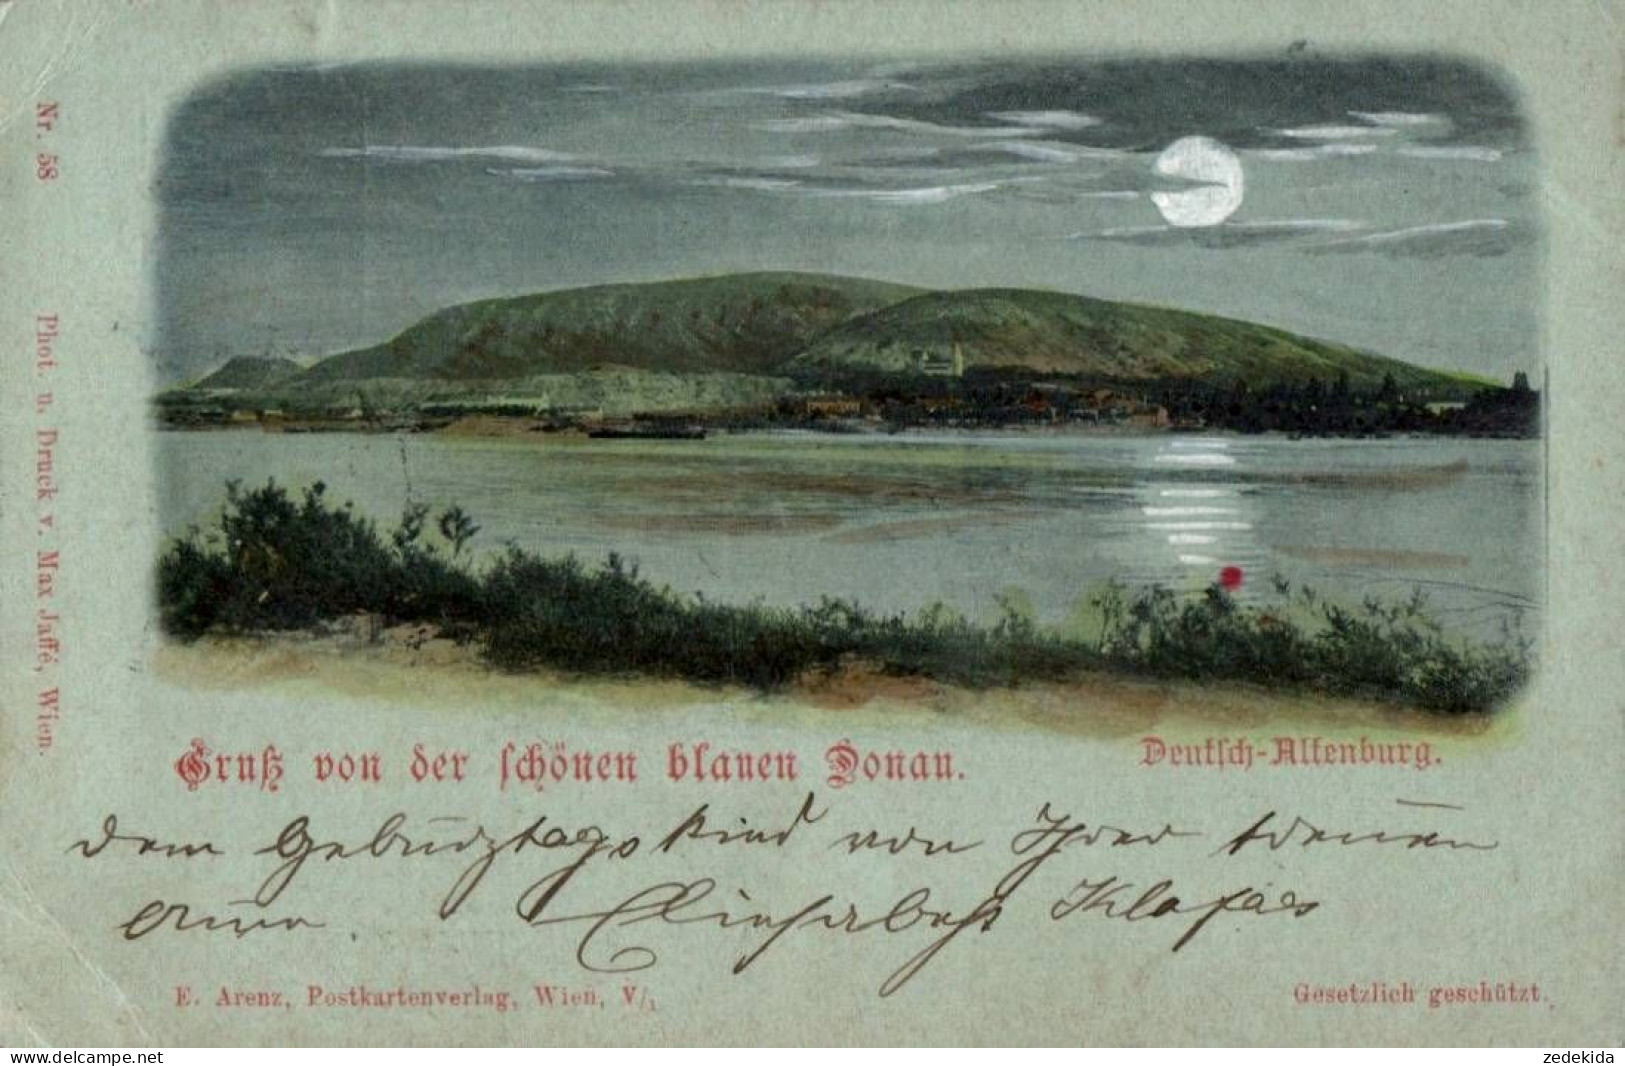 Nr. 58
Phot. u. Druck v. Max Jaffé, Wien.
Gruß von der schönen blauen Donau.
Deutsch-Altenburg.
dem Geburtstagskind von Ihrer treuen
Elisabeth
E. Arenz, Postkartenverlag, Wien, V/1
Gesetzlich geschützt.
www.delcampe.net
zedekida